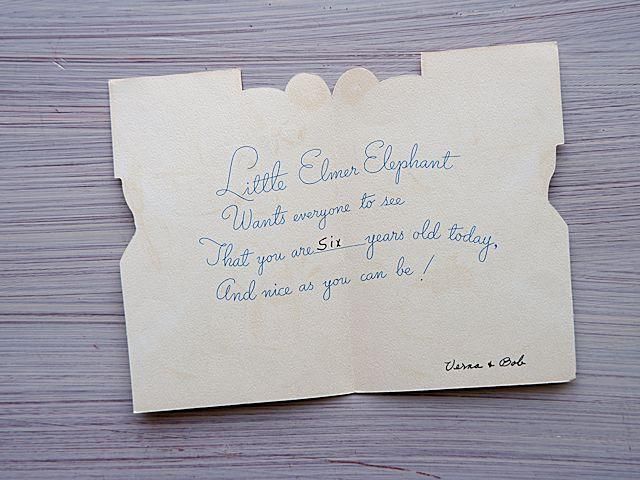 Little Elmer Elephant
Wants everyone to see
That you are Six years old today,
And nice as you can be!
Verna & Bob